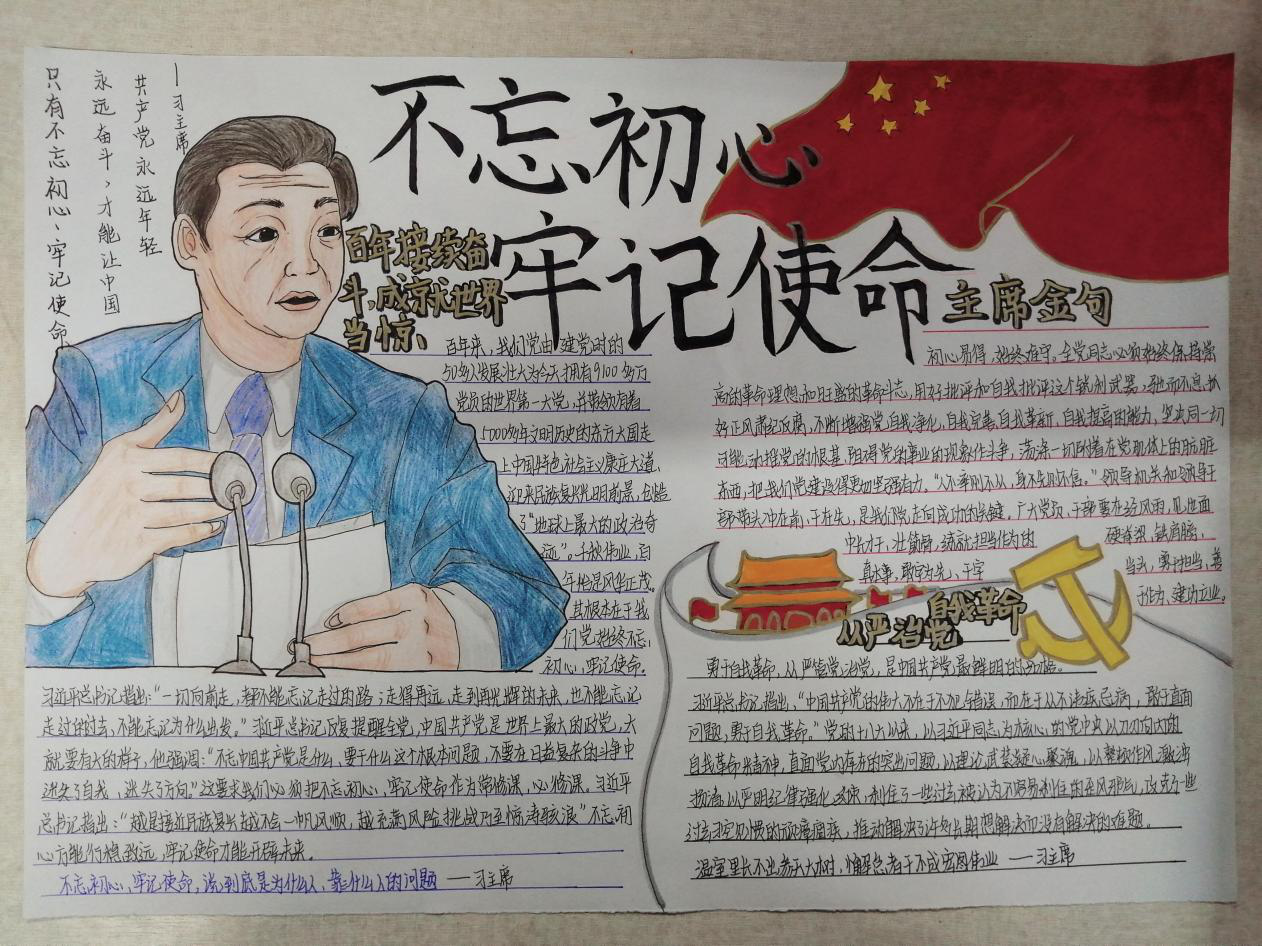 不忘初心
牢记使命
只有不忘初心、牢记使命
永远奋斗，才能让中国
共产党永远年轻
—习主席
百年接续奋
斗,成就世界
当惊、
百年来，我们党由建党时的
50多人发展壮大为今天拥有9100多万
党员的世界第一大党,并带领有着
5000多年文明历史的东方大国走
上中国特色社会主义康庄大道、
迎来民族复兴光明前景,创造
了"地球上最大的政治奇
迹"。千秋伟业,百
年恰是风华正茂。
其根本在于我
们党始终不忘
初心,牢记使命。
习近平总书记指出:"一切向前走，都不能忘记走过的路；走得再远、走到再光辉的未来，也不能忘记
走过的过去，不能忘记为什么出发。"习近平总书记反复提醒全党，中国共产党是世界上最大的政党，大
就要有大的样子,他强调:"不忘中国共产党是什么、要干什么这个根本问题，不要在日益复杂的斗争中
迷失了自我、迷失了方向。"这要求我们必须把不忘初心、牢记使命作为常修课、必修课。习近平
总书记指出:"越是接近民族复兴越不会一帆风顺，越充满风险挑战乃至惊涛骇浪"不忘初
心方能行稳致远，牢记使命才能开辟未来。
不忘初心、牢记使命，说到底是为什么人、靠什么人的问题 ——习主席
主席金句
初心易得,始终难守。全党同志必须始终保持崇
高的革命理想和旺盛的革命斗志，用好批评和自我批评这个锐利武器，驰而不息抓
好正风肃纪反腐,不断增强党自我净化、自我完善、自我革新、自我提高的能力,坚决同一切
可能动摇党的根基、阻碍党的事业的现象作斗争，荡涤一切附着在党肌体上的肮脏
东西,把我们党建设得更加坚强有力。"人不率则不从，身不先则不信。"领导机关和领导干
部带头冲在前、干在先，是我们党走向成功的关键。广大党员、干部要在经风雨、见世面
中长才干、壮筋骨，练就担当作为的
硬脊梁、铁肩膀，
真本事，敢字为先、干字
当头，勇于担当、善
于作为、建功立业。
自我革命
从严治党
勇于自我革命，从严管党治党，是中国共产党最鲜明的品格。
习近平总书记指出，"中国共产党的伟大不在于不犯错误，而在于从不讳疾忌病，敢于直面
问题，勇于自我革命。"党的十八大以来，以习近平同志为核心的党中央以刀刃向内的
自我革命精神，直面党内存在的突出问题，以理论武装凝心聚魂，以整饬作风激浊
扬清,以严明纪律强化约束，刹住了一些过去被认为不可能刹住的歪风邪气，攻克了一些
过去司空见惯的顽瘴痼疾，推动解决了许多长期想解决而没有解决的难题。
温室里长不出参天大树，懈怠者干不成宏图伟业 ——习主席